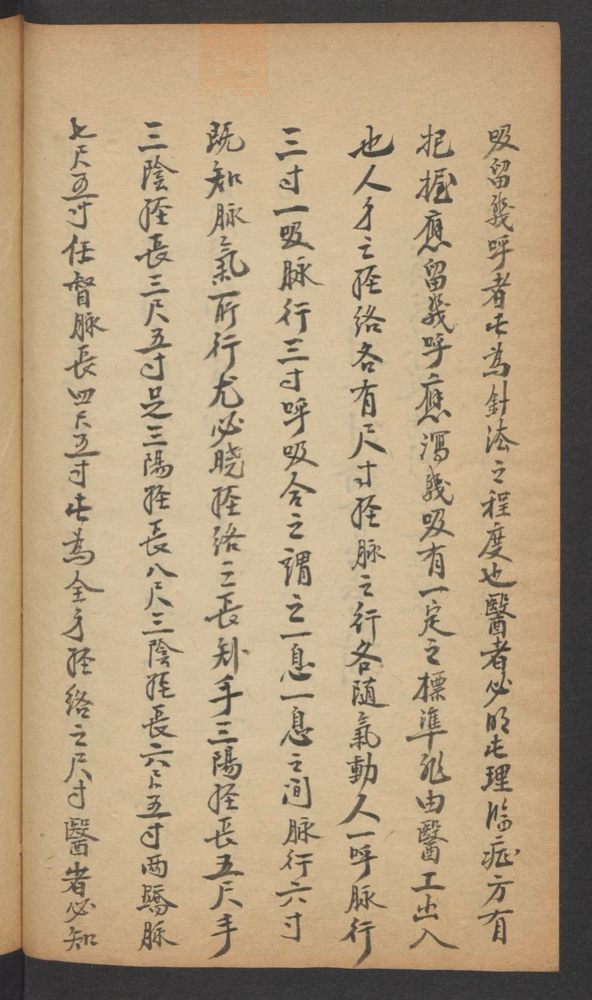 吸留幾呼者此為針法之程度也醫者必明此理臨症方有
把握應留幾呼應瀉幾吸有一定之標準非由醫工出入
也人身之經絡各有尺寸經脉之行各隨氣動人一呼脉行
三寸一吸脉行三寸呼吸合之謂之一息一息之间脉行六寸
既知脉氣所行尤必曉經絡之長知手三陽經長五尺手
三陰經長三尺五寸足三陽經長八尺三陰經長六尺五寸两蹻脉
七尺五寸任督脉長四尺五寸此為全身經絡之尺寸醫者必知